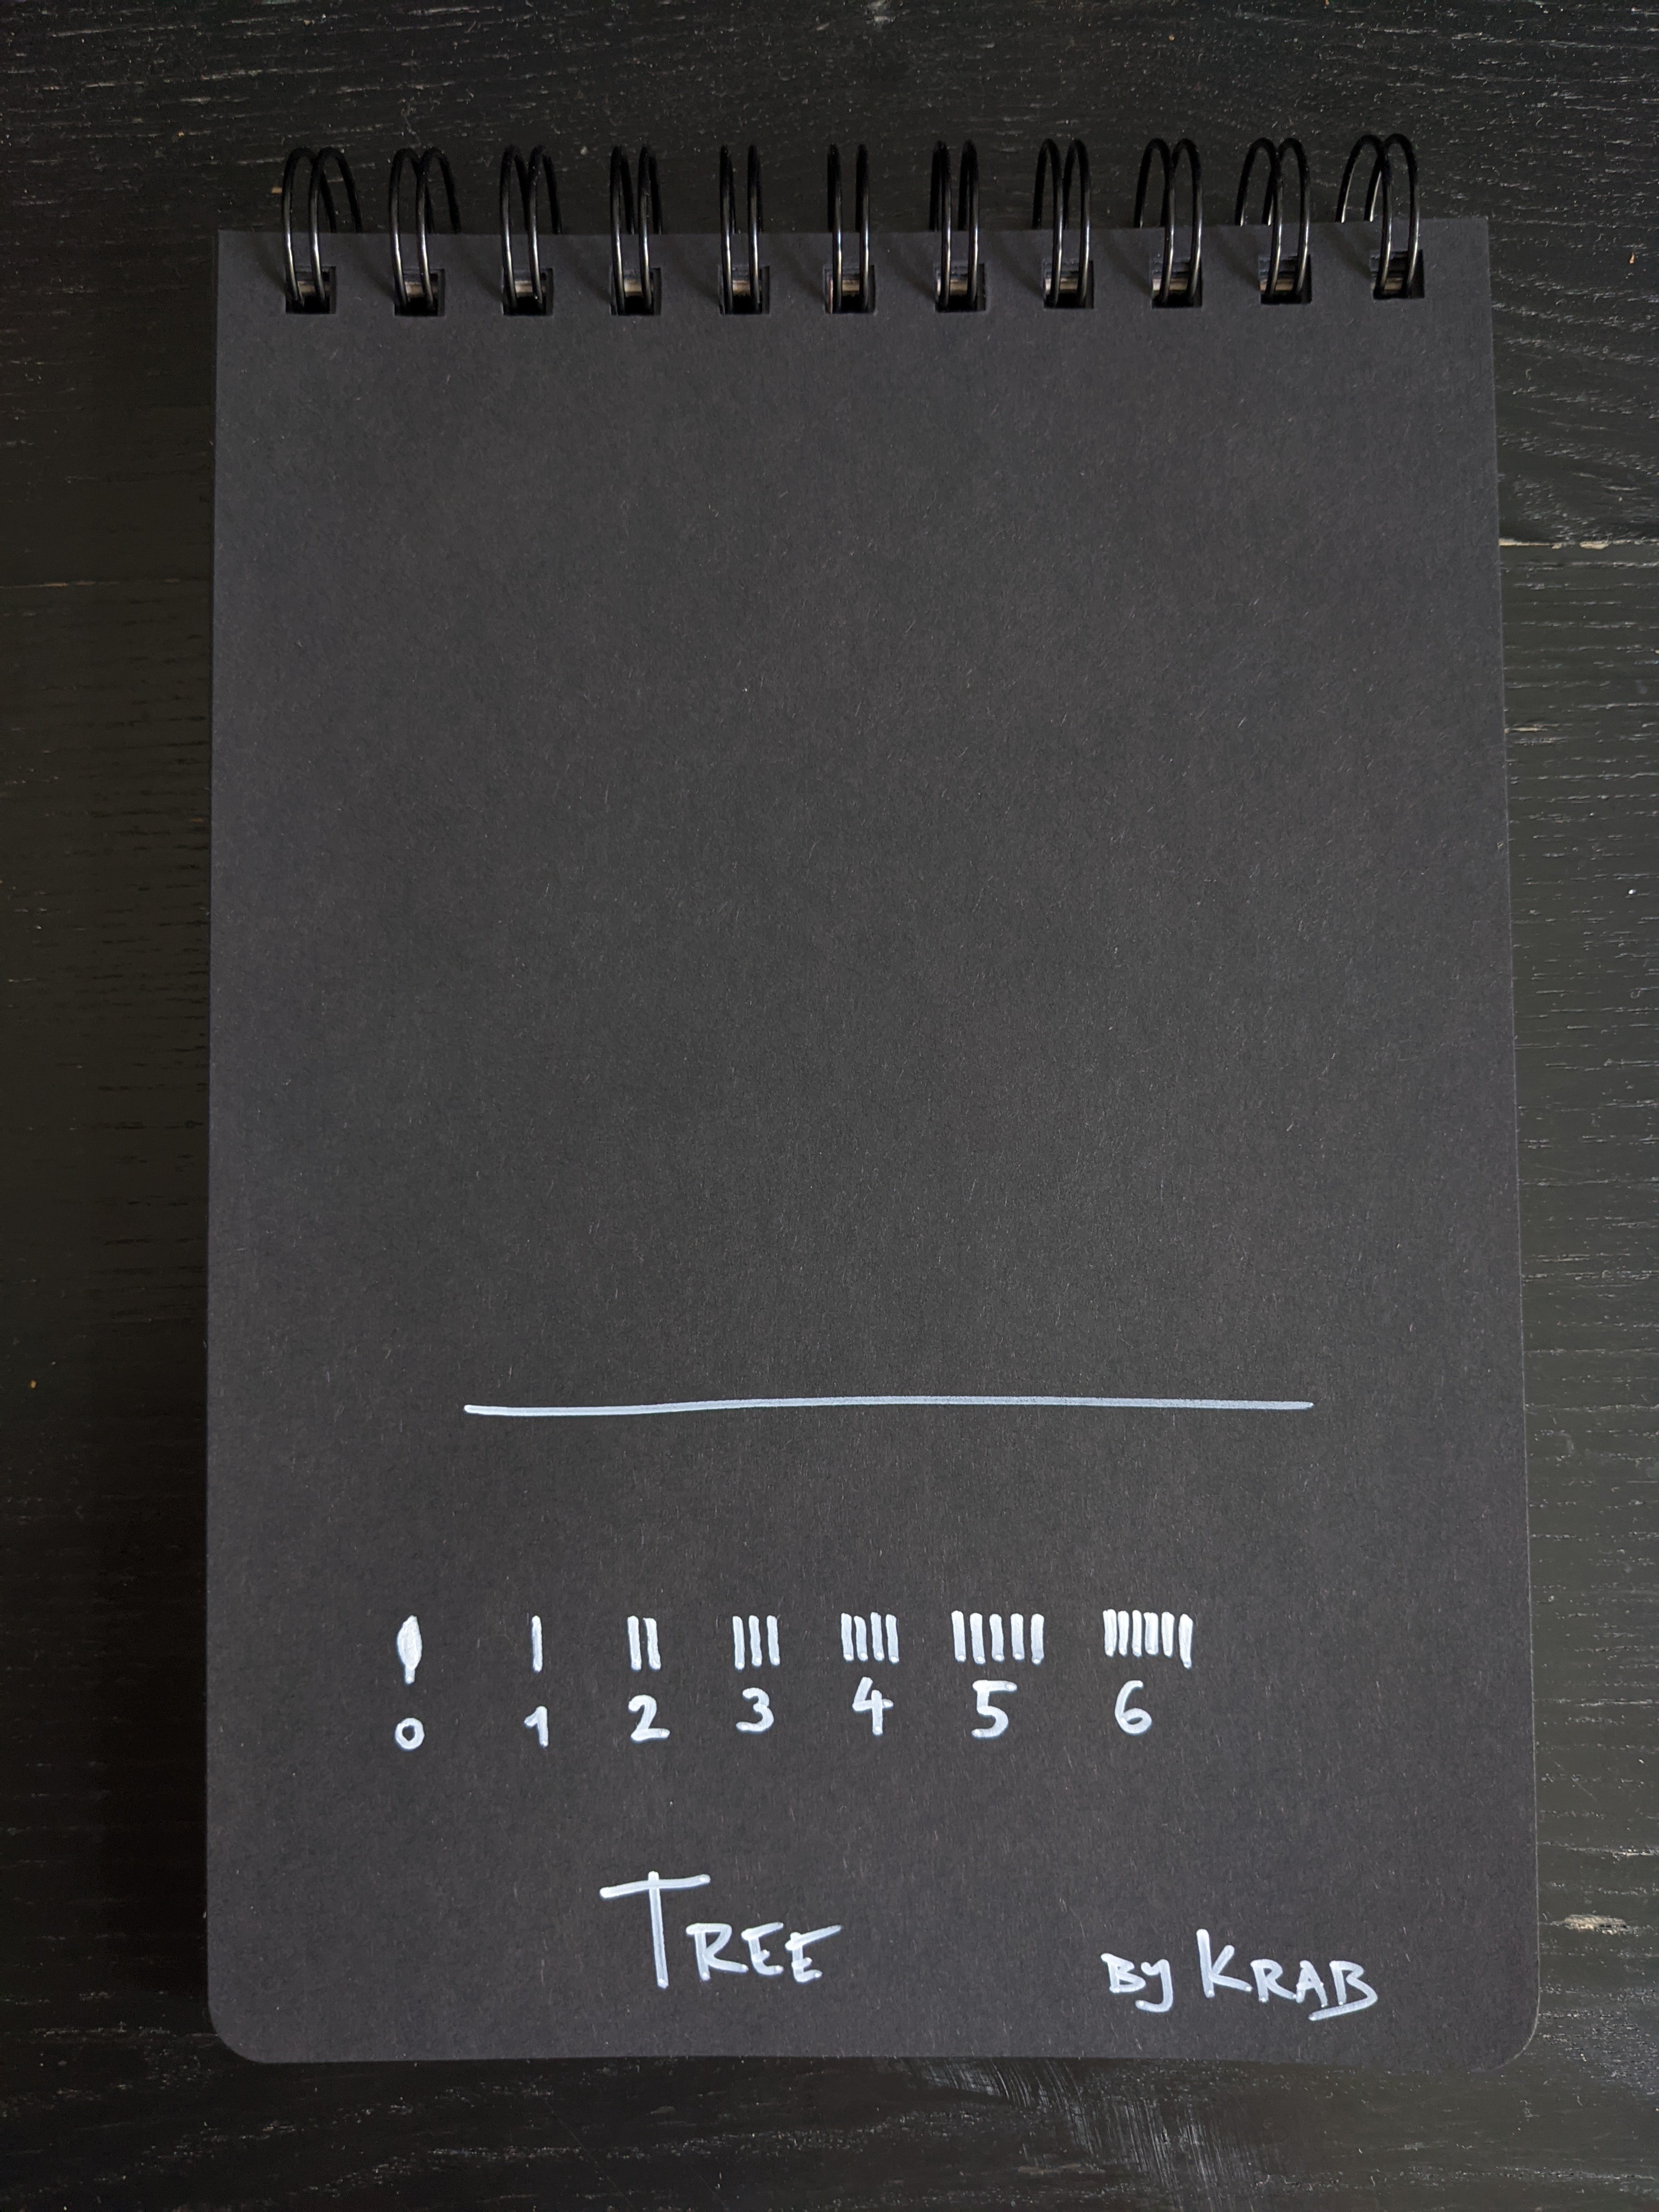 0 1 2 3 4 5 6
TREE
BY KRAB